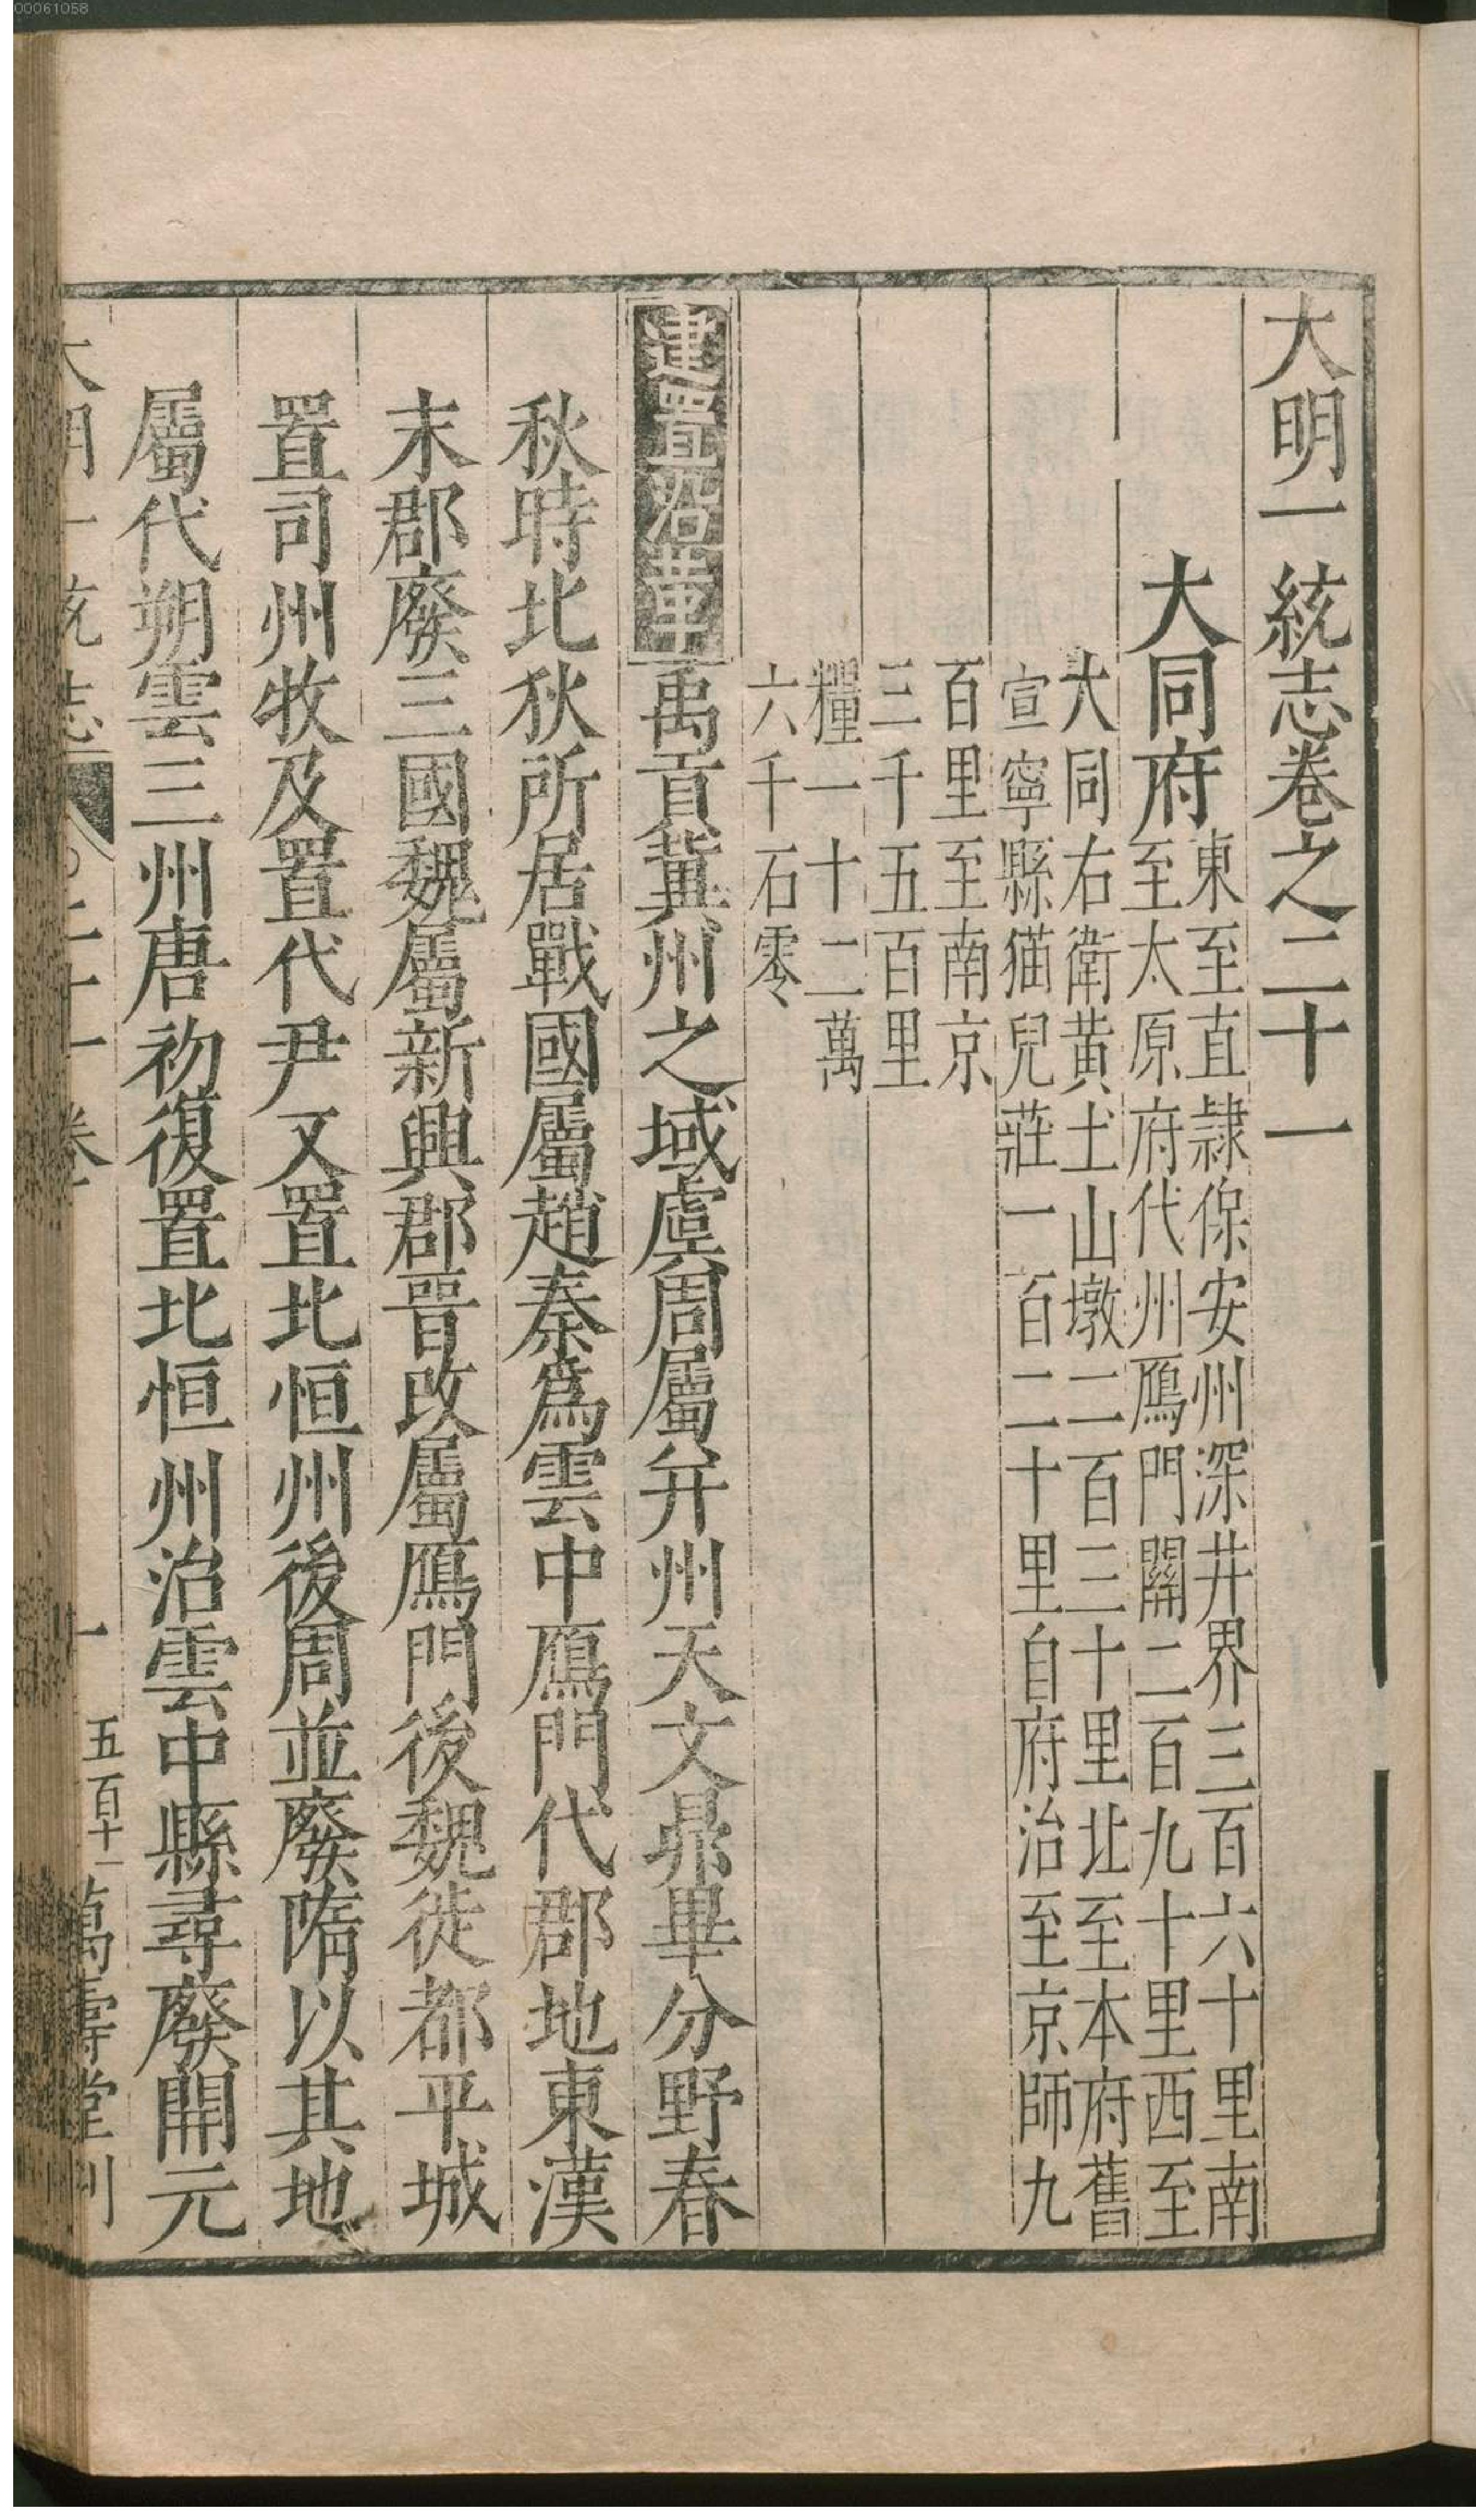 00061058
大明一統志卷之二十一
大同府
東至直隷保安州深井界三百六十里南
至太原府代州鴈門關二百九十里西至
大同右衛黄土山墩二百三十里北至本府舊
宣寧縣猫兒莊一百二十里自府治至京師九
百里至南京
三千五百里
糧一十二萬
六千石零
建置沿革禹貢冀州之域虞周屬并州天文昴畢分野春
秋時北狄所居戰國屬趙秦爲雲中鴈門代郡地東漢
末郡廢三國魏屬新興郡晋改屬鴈門後魏徙都平城
置司州牧及置代尹又置北恒州後周並廢隋以其地
屬代朔雲三州唐初復置北恒州治雲中縣尋廢開元
大明一統志 二十一卷 一 五百十一 萬壽堂刊